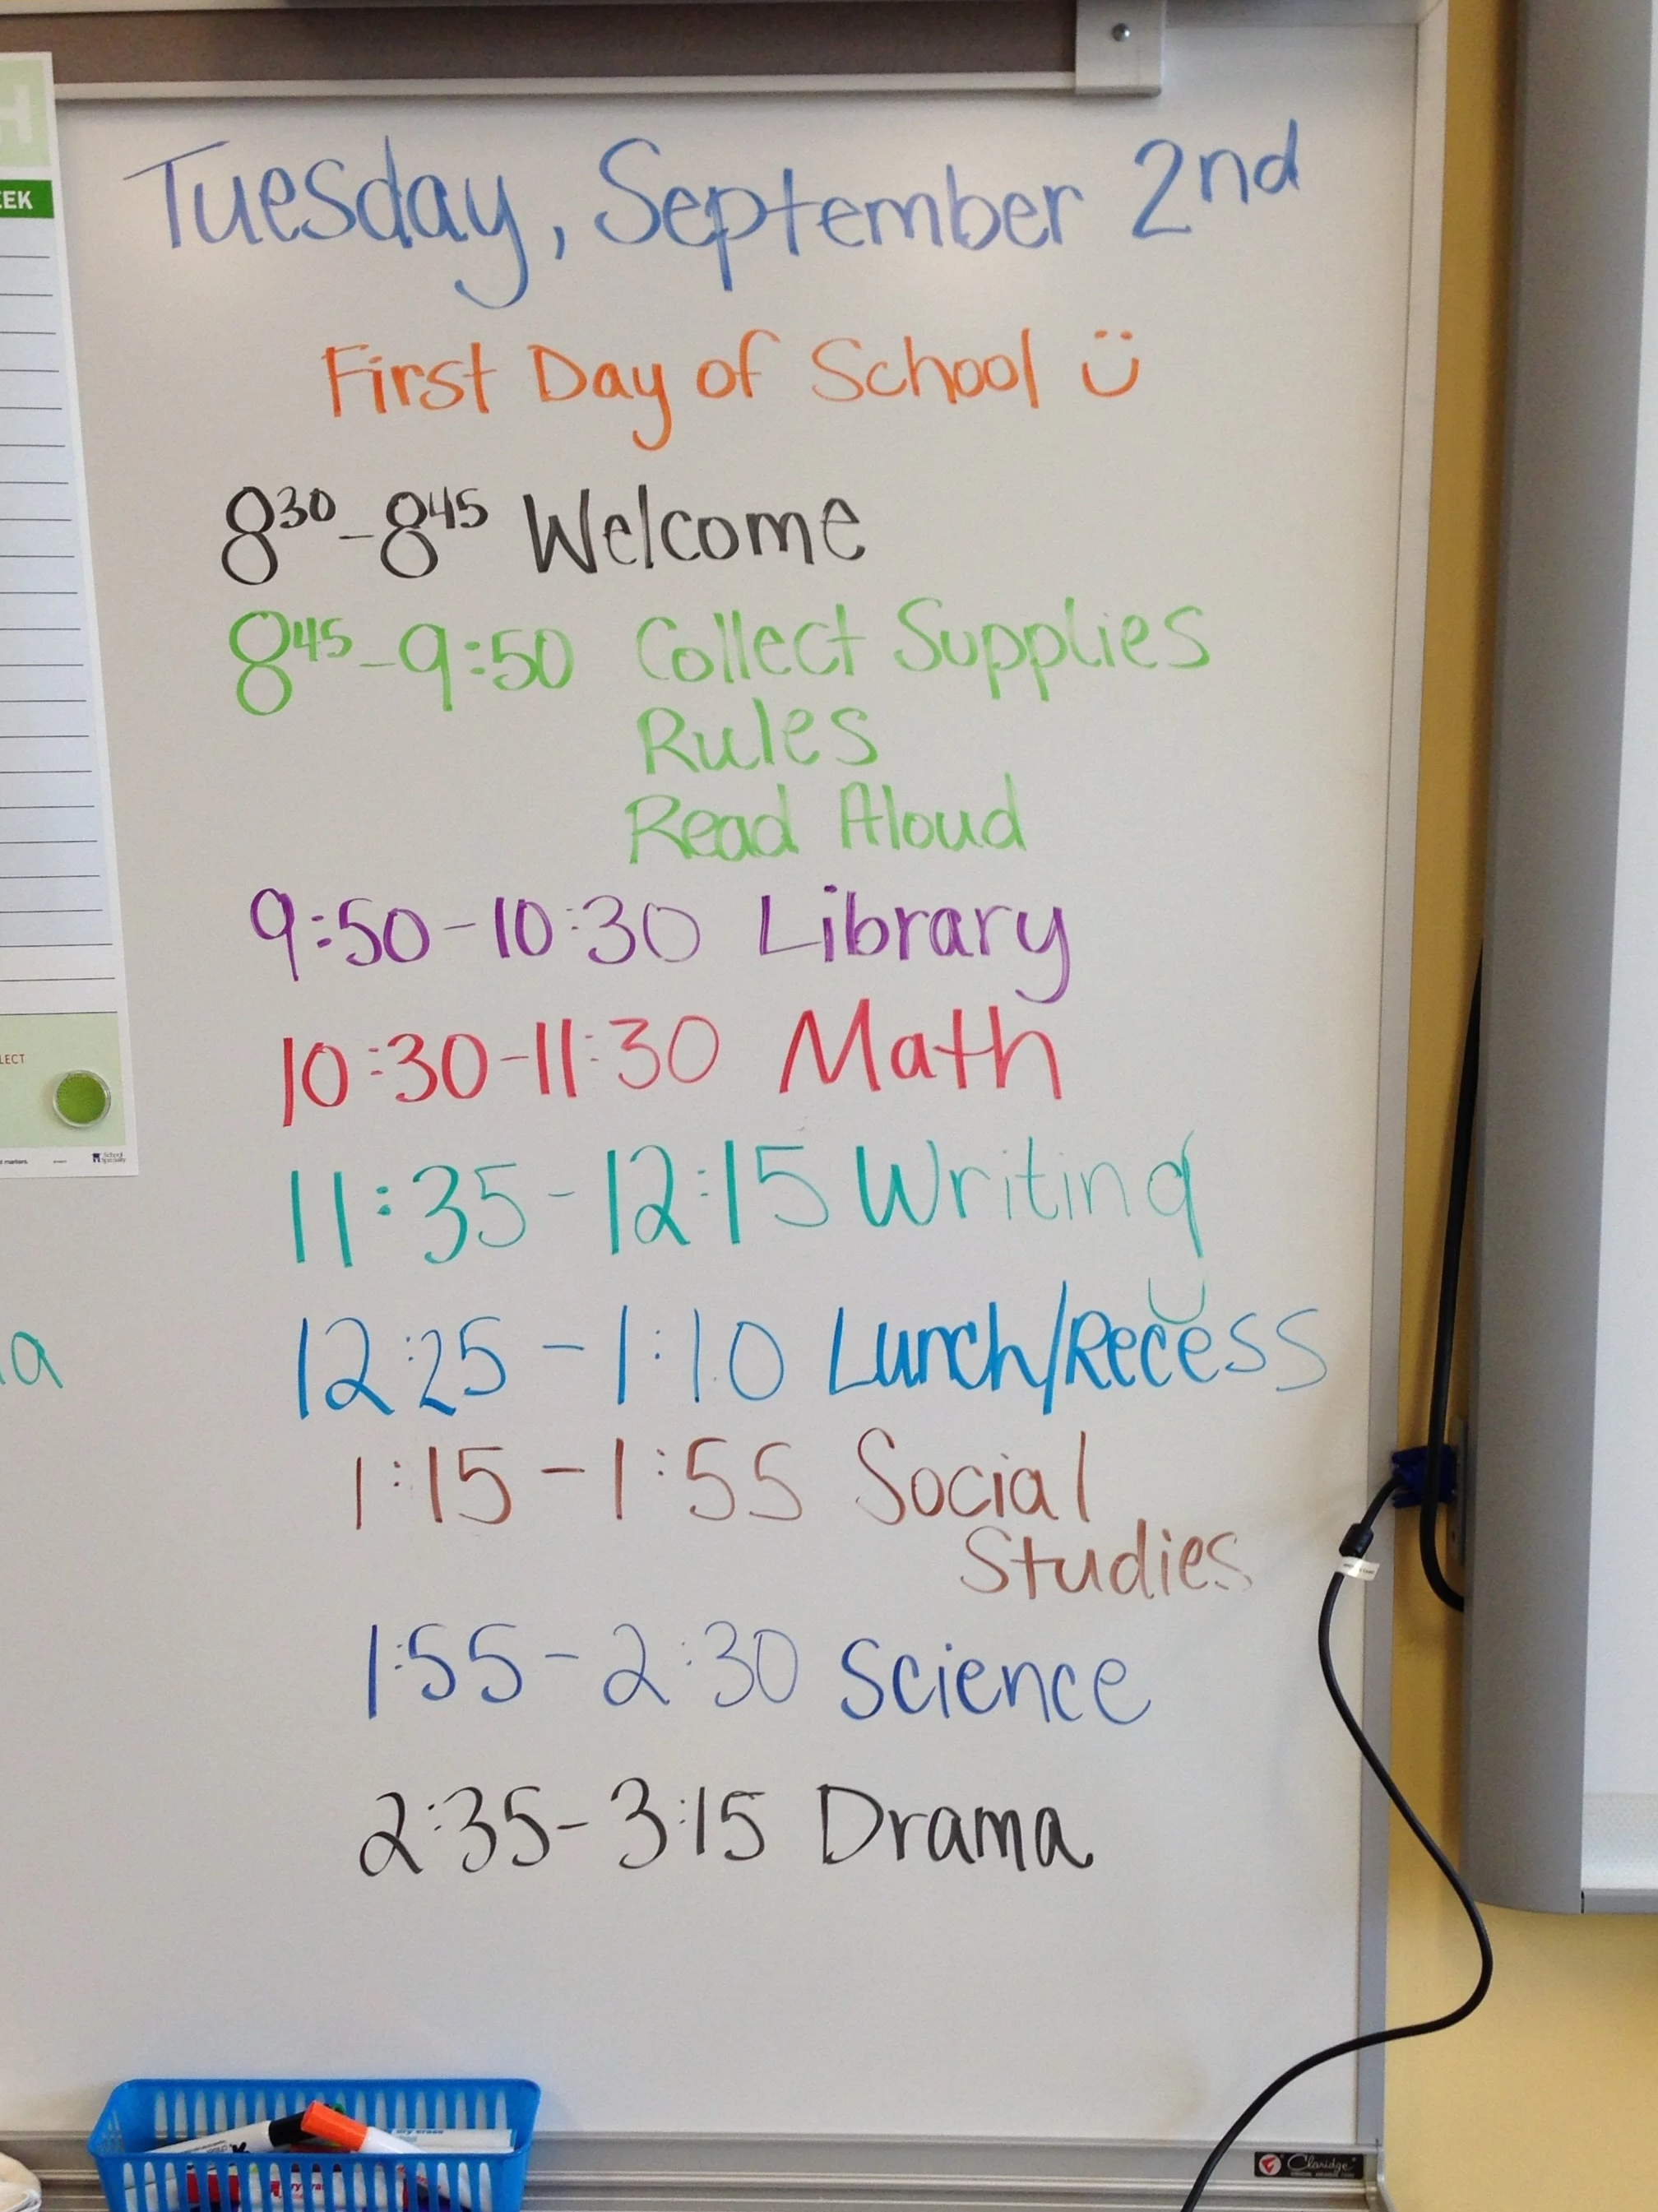 H
EEK
LECT
t markers.
School
Specialty
a
Tuesday, September 2nd
First Day of School
8 30 - 8 45 Welcome
8 45 - 9:50 Collect Supplies
Rules
Read Aloud
9:50 - 10:30 Library
10:30 - 11:30 Math
11:35 - 12:15 Writing
12:25 - 1:10 Lunch/Recess
1:15 - 1:55 Social
Studies
1:55 - 2:30 Science
2:35 - 3:15 Drama
Claridge